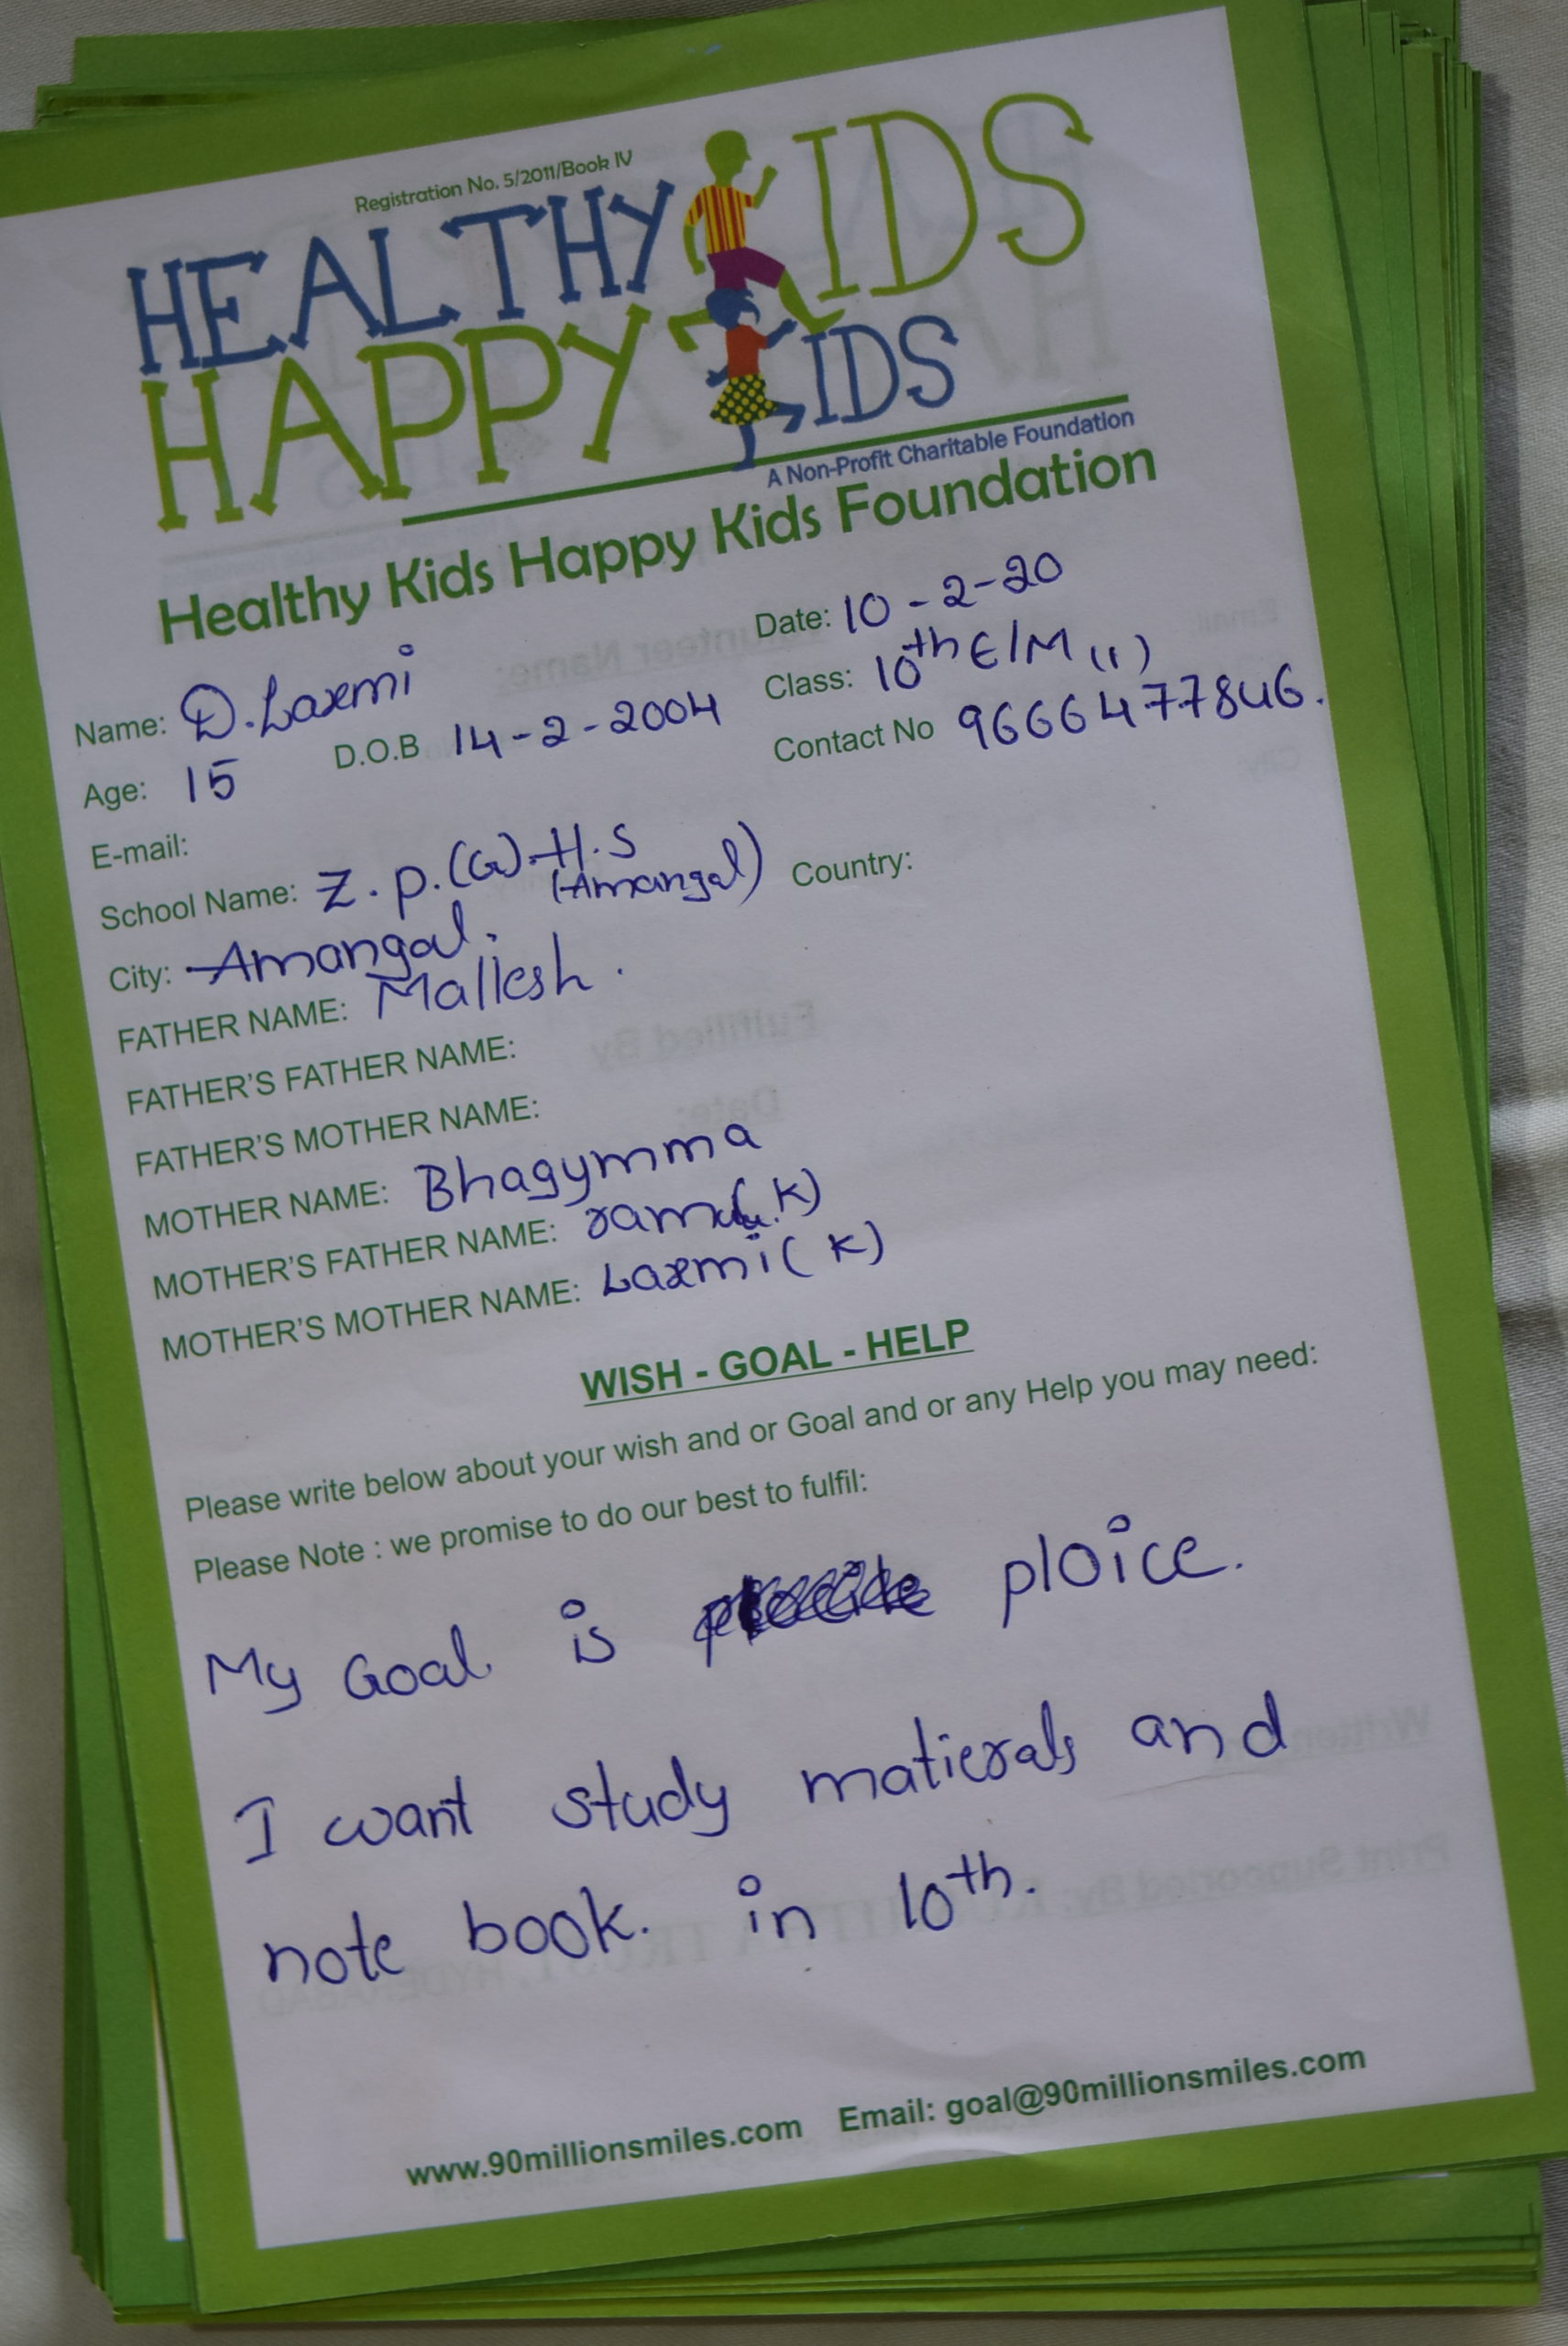 Registration No. 5/2011/Book IV
HEALTHY KIDS
HAPPY KIDS
A Non-Profit Charitable Foundation
Healthy Kids Happy Kids Foundation
Date: 10-2-20
Name: D.Laxmi Class: 10th E/M (1)
Age: 15 D.O.B 14-2-2004 Contact No 9666477846.
E-mail:
School Name: Z.p.(G).H.S (Amangal) Country:
City: Amangal.
FATHER NAME: Mallesh.
FATHER'S FATHER NAME:
FATHER'S MOTHER NAME:
MOTHER NAME: Bhagymma
MOTHER'S FATHER NAME: (K)
MOTHER'S MOTHER NAME: Laxmi (K)
WISH - GOAL - HELP
Please write below about your wish and or Goal and or any Help you may need:
Please Note : we promise to do our best to fulfil:
My Goal is ploice.
I want study matierals and
note book. in 10th.
www.90millionsmiles.com Email: goal@90millionsmiles.com